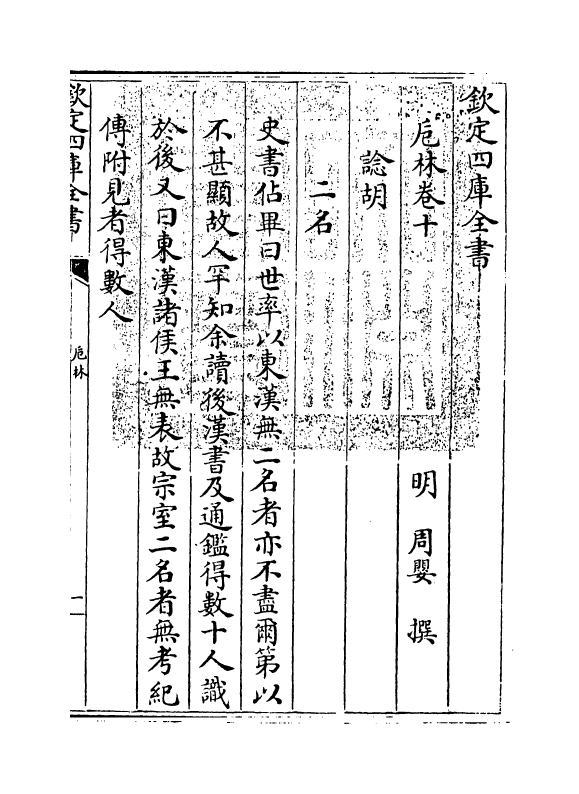 欽定四庫全書
卮林卷十
明 周嬰 撰
諗胡
二名
史書佔畢曰世率以東漢無二名者亦不盡爾第以
不甚顯故人罕知余讀後漢書及通鑑得數十人識
於後又曰東漢諸侯王無表故宗室二名者無考紀
傳附見者得數人
欽定四庫全書
卮林
一